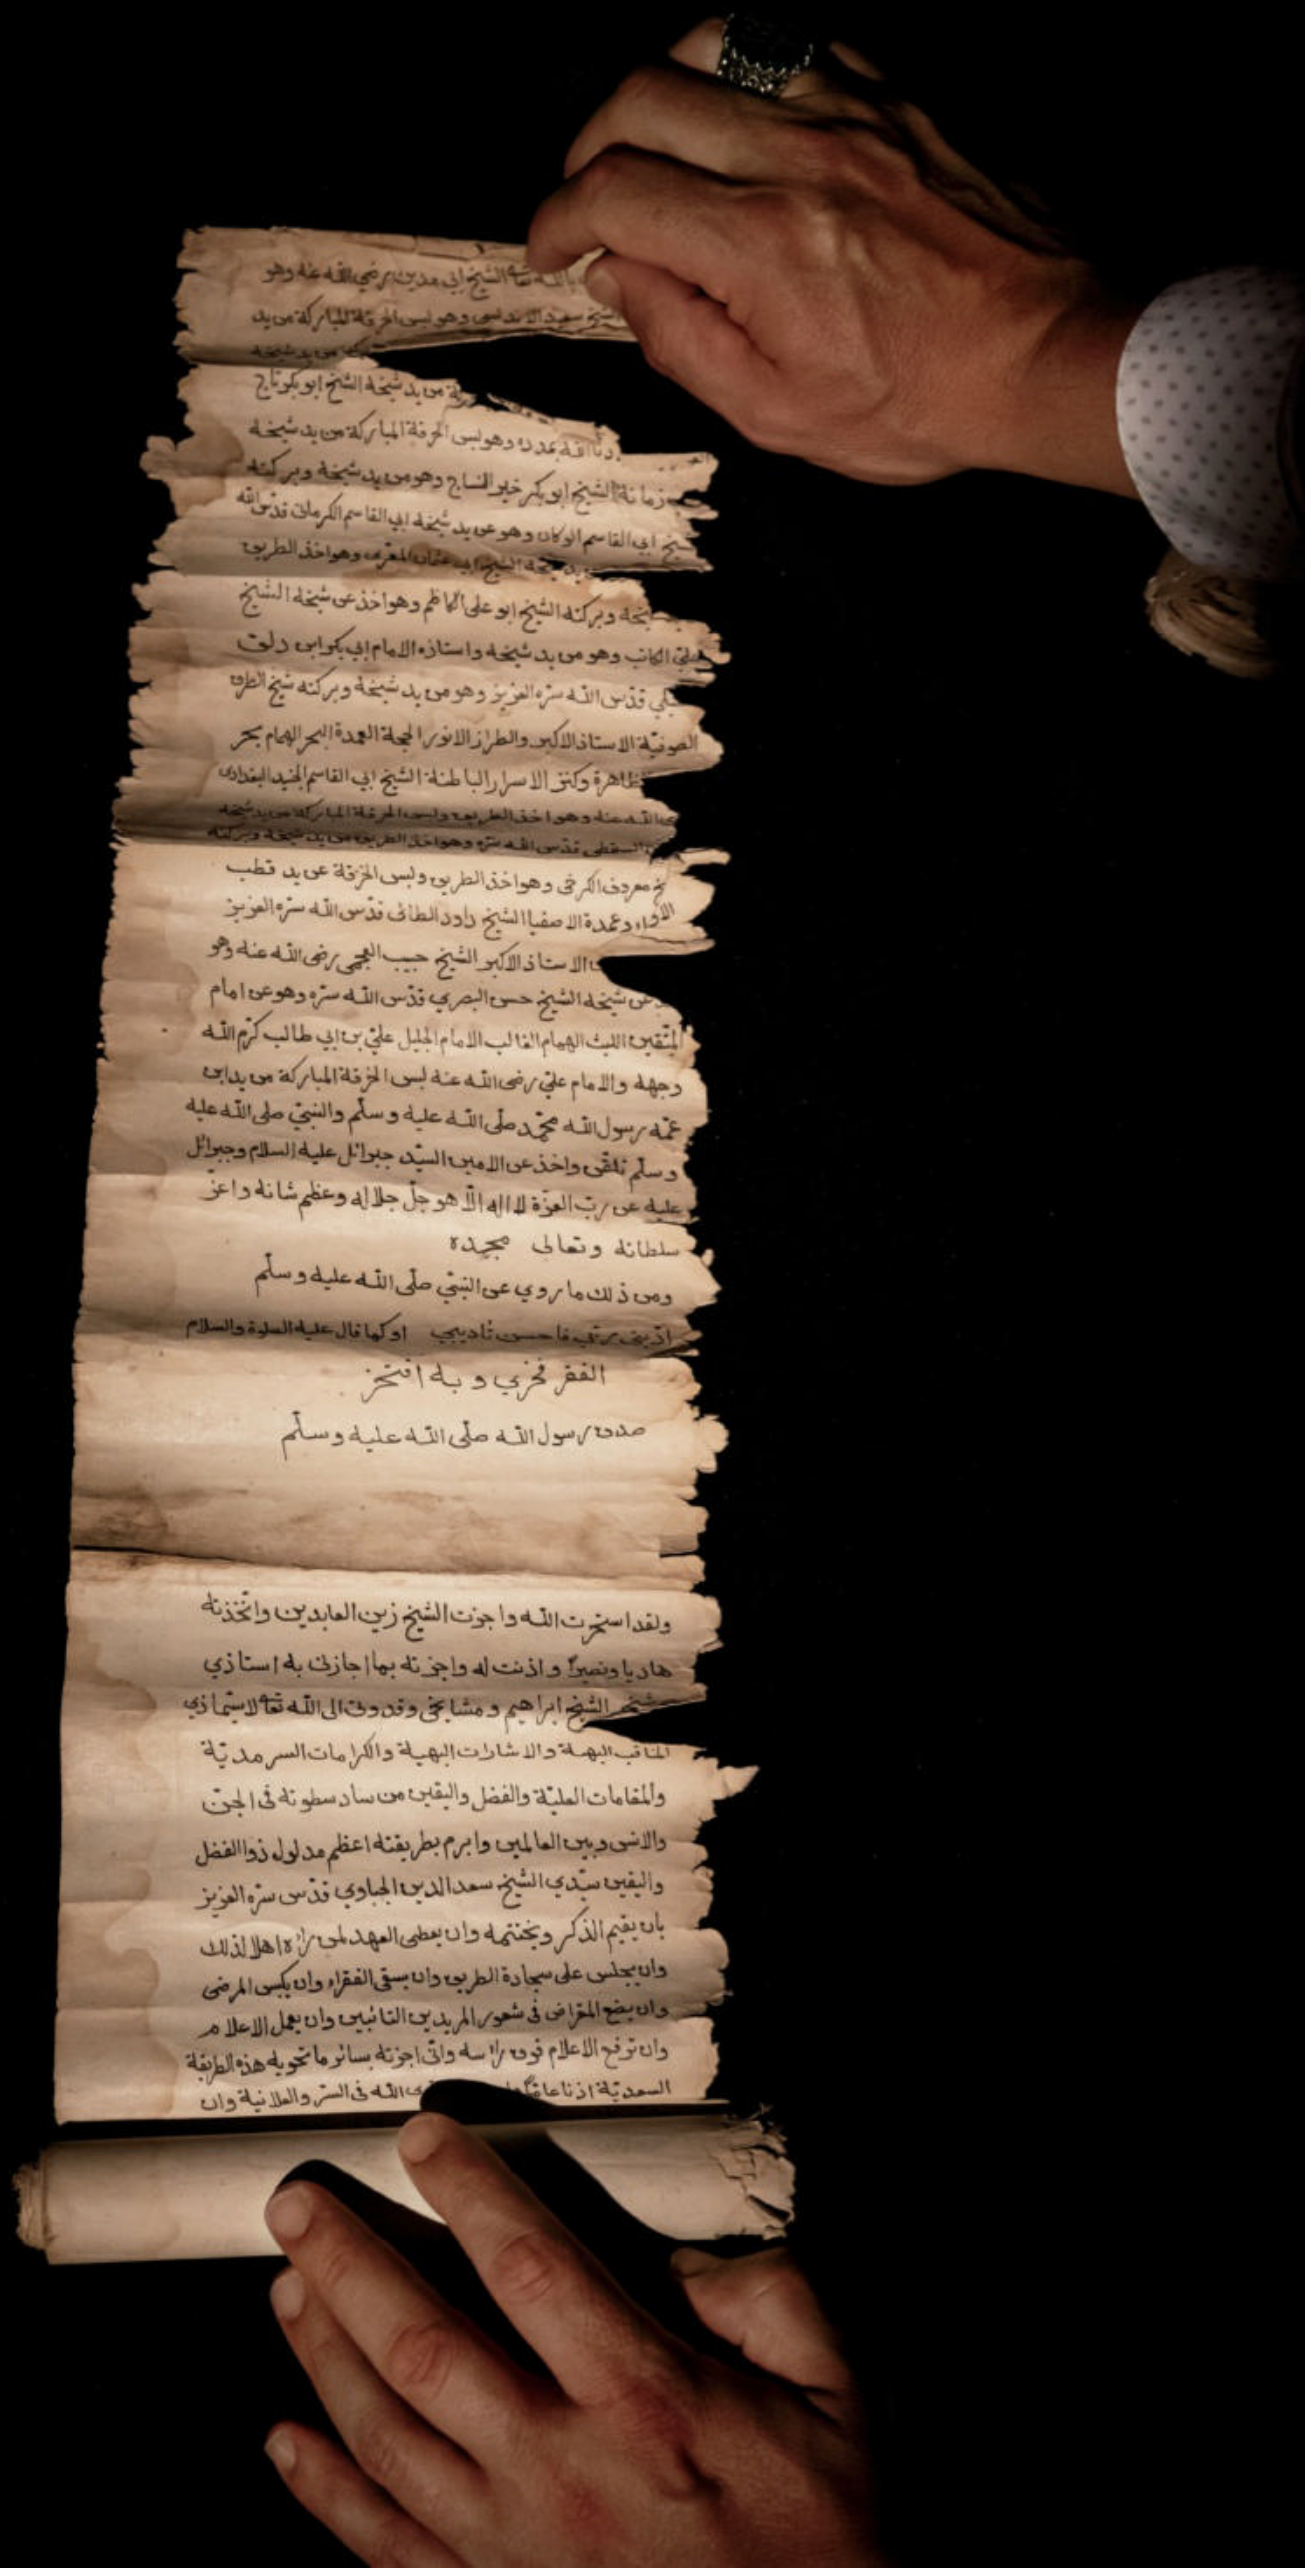 بالله تعالى الشيخ ابي مدين رضي الله عنه وهو
الشيخ سعيد الاندلسي وهو لبس الخرقة المباركة من يد
من يد شيخه
من يد شيخه الشيخ ابو بكر تاج
الله بمدده وهو لبس الخرقة المباركة من يد شيخه
زمانة الشيخ ابو بكر خير النساج وهو من يد شيخه وبركته
ابي القاسم وهو عن يد شيخه ابي القاسم الكرماني قدس الله
يد شيخه الشيخ ابي عثمان المغربي وهو اخذ الطريق
وبركته الشيخ ابو على الكاظم وهو اخذ عن شيخه الشيخ
الكاتب وهو من يد شيخه واستاذه الامام ابي بكر ابن دلف
قدّس الله سرّه العزيز وهو من يد شيخه وبركته شيخ الطرق
الصوفيّة الاستاذ الاكبر والطراز الانور الحجة العمدة البحر الهمام بحر
وكنز الاسرار الباطنة الشيخ ابي القاسم الجنيد البغدادى
الله عنه وهو اخذ الطريق ولبس الخرقة المباركة من يد شيخه
السقطي قدّس الله سرّه وهو اخذ الطريق من يد شيخه وبركته
معروف الكرخى وهو اخذ الطريق ولبس الخرقة عن يد قطب
وعمدة الاصفيا الشيخ داود الطائى قدّس الله سرّه العزيز
الاستاذ الاكبر الشيخ حبيب العجمى رضى الله عنه وهو
عن شيخه الشيخ حسن البصري قدّس الله سرّه وهو عن امام
المتّقين الليث الهمام الغالب الامام الجليل عليّ بن ابي طالب كرّم الله
وجهه والامام عليّ رضى الله عنه لبس الخرقة المباركة من يد ابن
عمّه رسول الله محمّد صلّى الله عليه وسلّم والنبيّ صلى الله عليه
وسلّم تلقّى واخذ عن الامين السيّد جبرائل عليه السلام وجبرائل
عليه عن ربّ العزّة لا اله الّا هو جلّ جلاله وعظم شانه واعزّ
سلطانه وتعالى مجده
ومن ذلك ما روي عن النبيّ صلّى الله عليه وسلّم
ادّبنى ربّي فاحسن تاديبي او كما قال عليه الصلوة والسلام
الفقر فخري وبه افتخر
صدق رسول الله صلّى الله عليه وسلّم
ولقد استخرت الله واجزت الشيخ زين العابدين واتّخذته
هاديا ونصيرًا واذنت له واجزته بما اجازنى به استاذي
الشيخ ابراهيم ومشايخى وقدوتى الى الله تعالى لاسيّما ذي
المناقب البهية والاشارات البهية والكرامات السرمديّة
والمقامات العليّة والفضل واليقين من ساد سطوته فى الجنّ
والانس وبين العالمين وابرم بطريقته اعظم مدلول ذو الفضل
واليقين سيّدي الشيخ سعد الدين الجباوي قدّس سرّه العزيز
بان يقيم الذكر ويختتمه وان يعطى العهد لمن راه اهلا لذلك
وان يجلس على سجادة الطريق وان يسقى الفقراء وان يكبس المرضى
وان يضع المقراض فى شعور المريدين التائبين وان يعمل الاعلام
وان ترفع الاعلام فوق راسه وانّى اجزته بسائر ما تحويه هذه الطريقة
السعديّة اذنا الله فى السرّ والعلانية وان